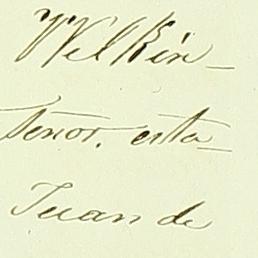 Wilkin-
señor. esta-
Juan de